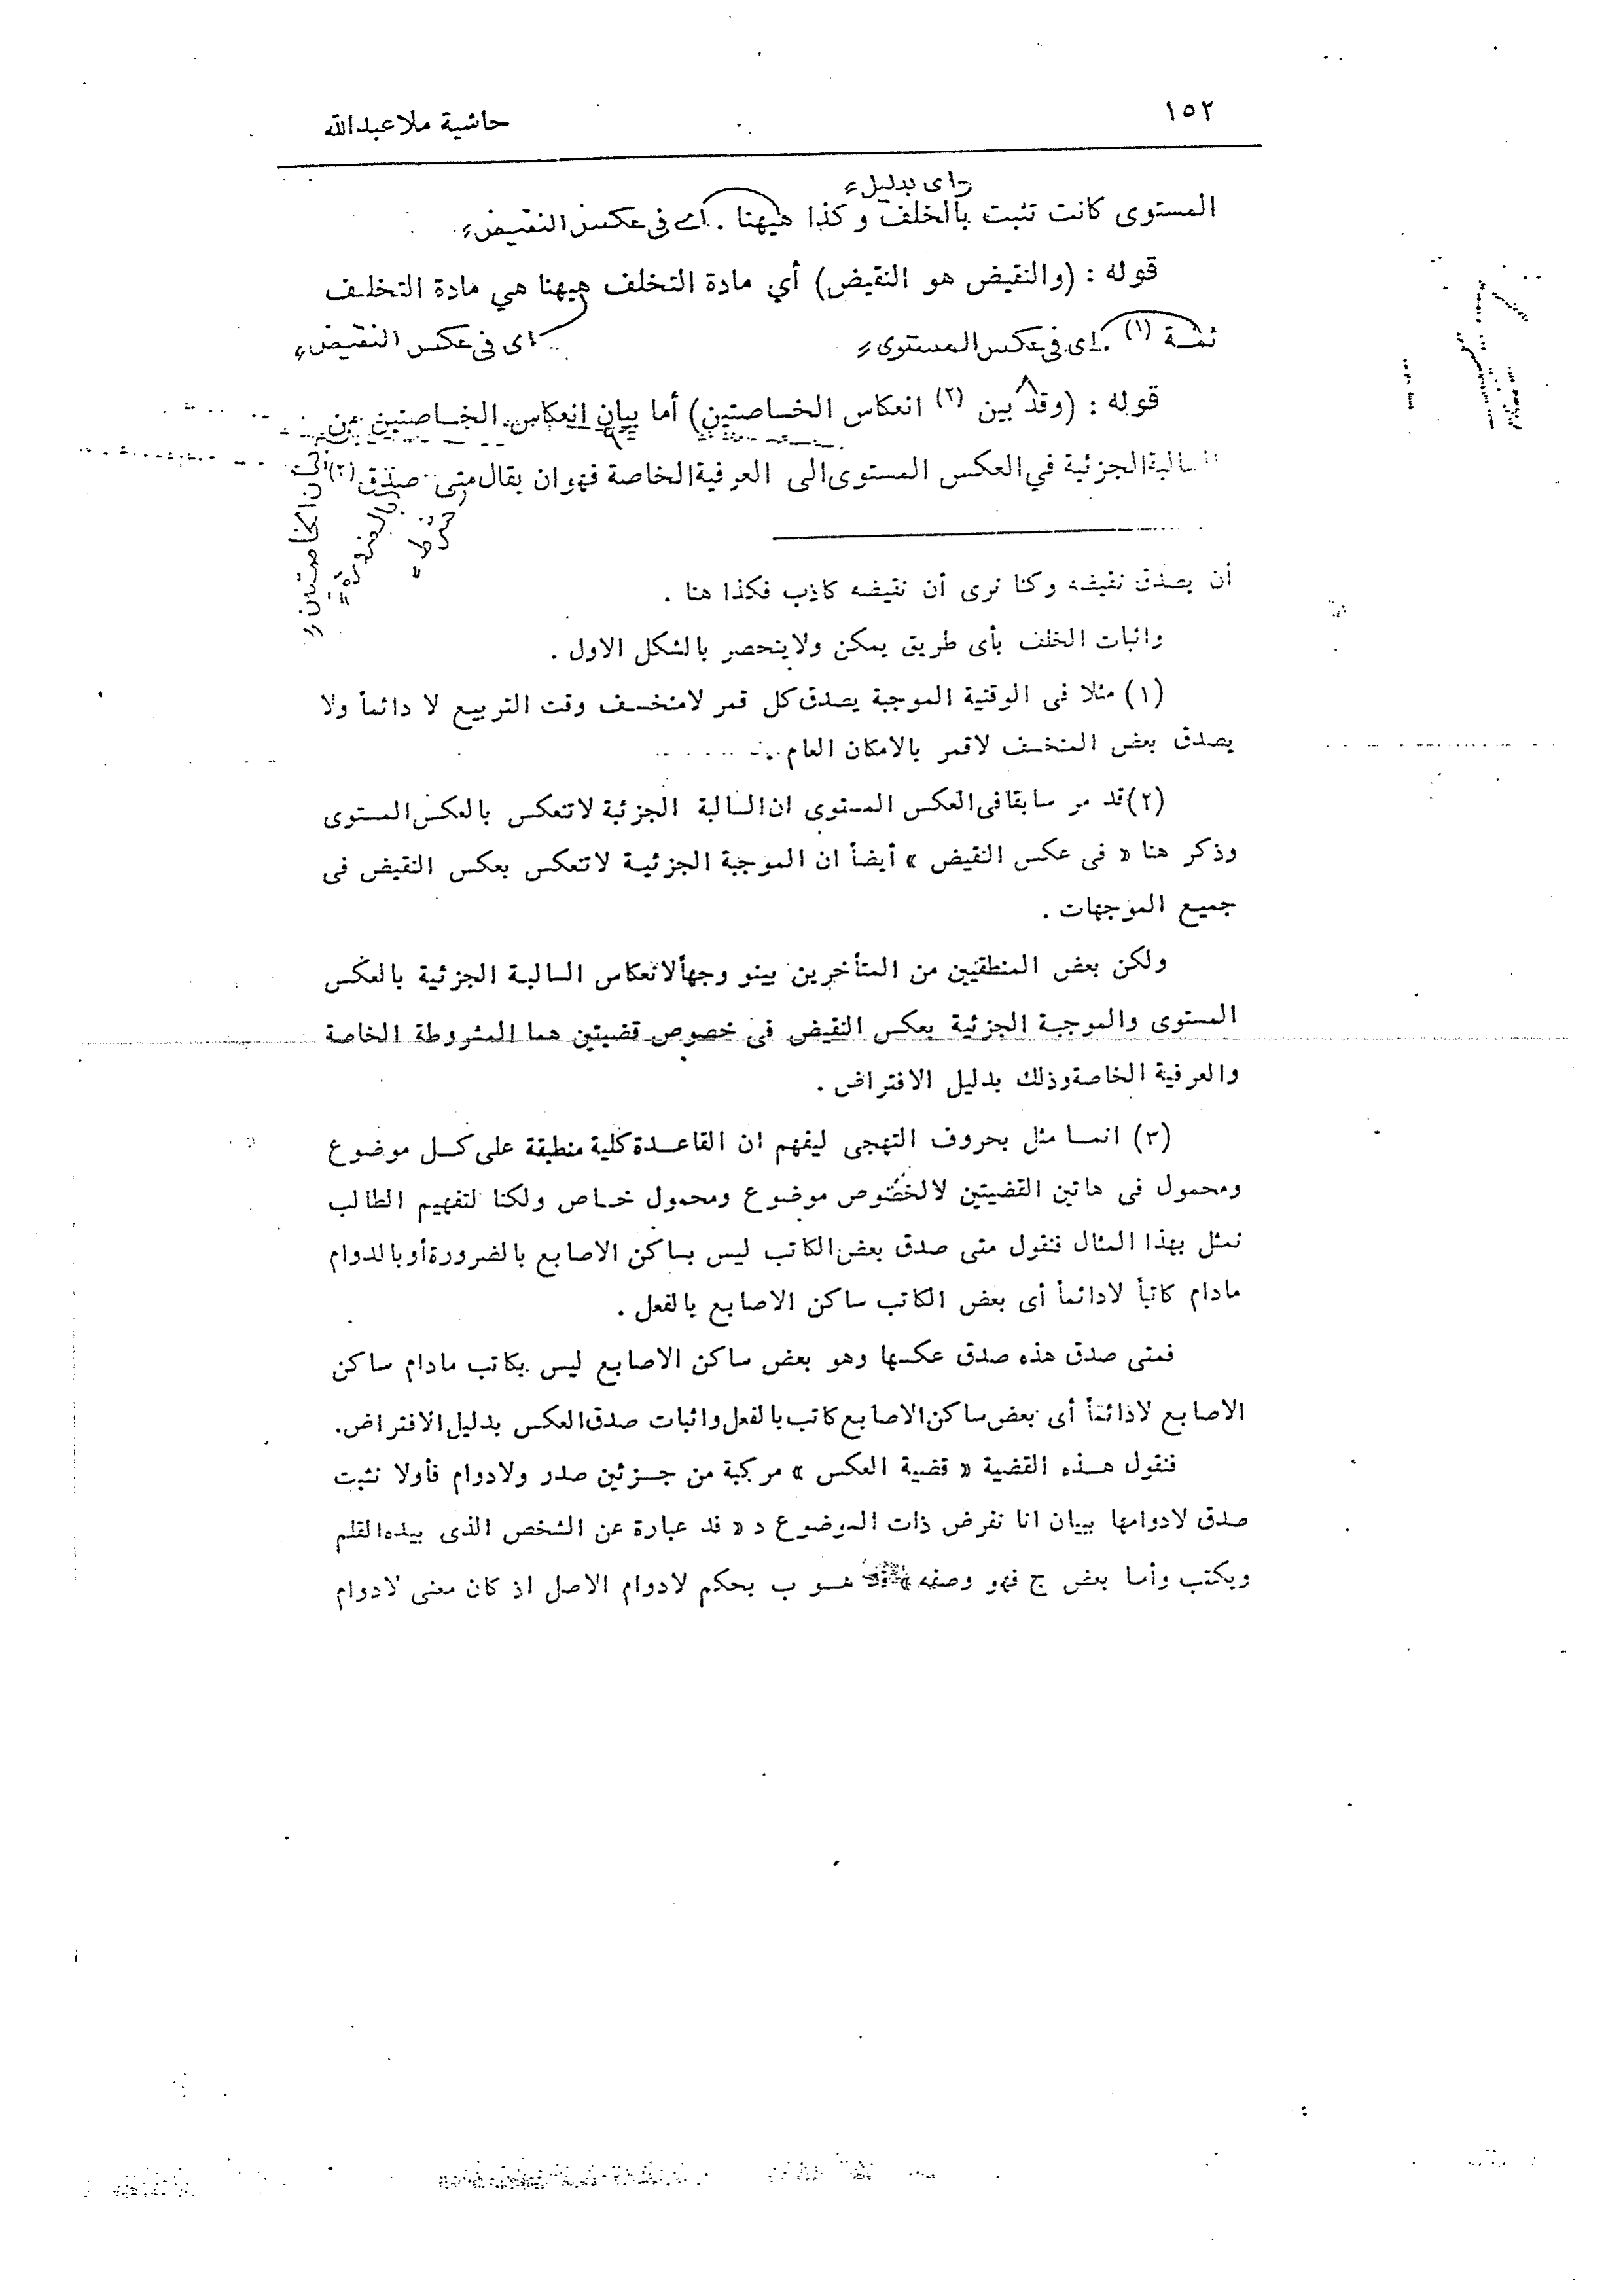 ١٥٢
حاشية ملاعبدالله
اى بدليل
المستوى كانت تثبت بالخلف وكذا هيهنا . اى فى عكس النقيض
قوله : (والنقيض هو النقيض) أي مادة التخلف هيهنا هي مادة التخلف
ثمـة (١) . اى فى عكس المستوى اى فى عكس النقيض
قوله : (وقد بين (٢) انعكاس الخـاصتين) أما بيان انعكاس الخـاصتين من
السالبة الجزئية في العكس المستوى الى العرفية الخاصة فهو ان يقال متى صدق (٣)
أن يصدق نقيضه وكنا نرى أن نقيضه كاذب فكذا هنا .
واثبات الخلف بأى طريق يمكن ولاينحصر بالشكل الاول .
(١) مثلا فى الوقتية الموجبة يصدق كل قمر لامنخسف وقت التربيع لا دائماً ولا
يصدق بعض المنخسف لاقمر بالامكان العام .
(٢) قد مر سابقا فى العكس المستوى ان السالبة الجزئية لاتنعكس بالعكس المستوى
وذكر هنا « فى عكس النقيض » أيضاً ان الموجبة الجزئيـة لاتنعكس بعكس النقيض فى
جميع الموجهات .
ولكن بعض المنطقيين من المتأخرين بينو وجهاً لانعكاس السالبـة الجزئية بالعكس
المستوى والموجبـة الجزئية بعكس النقيض فى خصوص قضيتين هما المشروطة الخاصة
والعرفية الخاصة وذلك بدليل الافتراض .
(٣) انمـا مثل بحروف التهجى ليفهم ان القاعـدة كلية منطبقة على كـل موضوع
ومحمول فى هاتين القضيتين لالخصوص موضوع ومحمول خـاص ولكنا لتفهيم الطالب
نمثل بهذا المثال فنقول متى صدق بعض الكاتب ليس بساكن الاصابع بالضرورة أو بالدوام
مادام كاتباً لادائماً أى بعض الكاتب ساكن الاصابع بالفعل .
فمتى صدق هذه صدق عكسها وهو بعض ساكن الاصابع ليس بكاتب مادام ساكن
الاصابع لادائماً أى بعض ساكن الاصابع كاتب بالفعل واثبات صدق العكس بدليل الافتراض.
فنقول هـذه القضية « قضية العكس » مركبة من جـزئين صدر ولادوام فأولا نثبت
صدق لادوامها ببيان انا نفرض ذات الموضوع د « فد عبارة عن الشخص الذى بيده القلم
ويكتب وأما بعض ج فهو وصفه » هـو ب بحكم لادوام الاصل اذ كان معنى لادوام